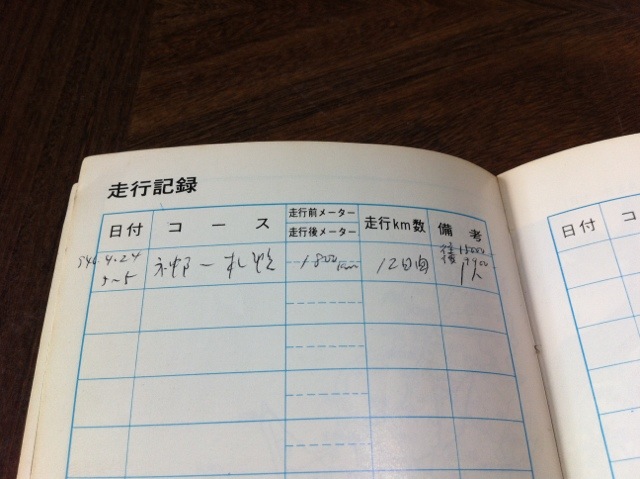 走行記録
日付 コース 走行前メーター 走行後メーター 走行km数 備考
4.24 札幌 1800km 12日間
5~5 1人
日付 コ